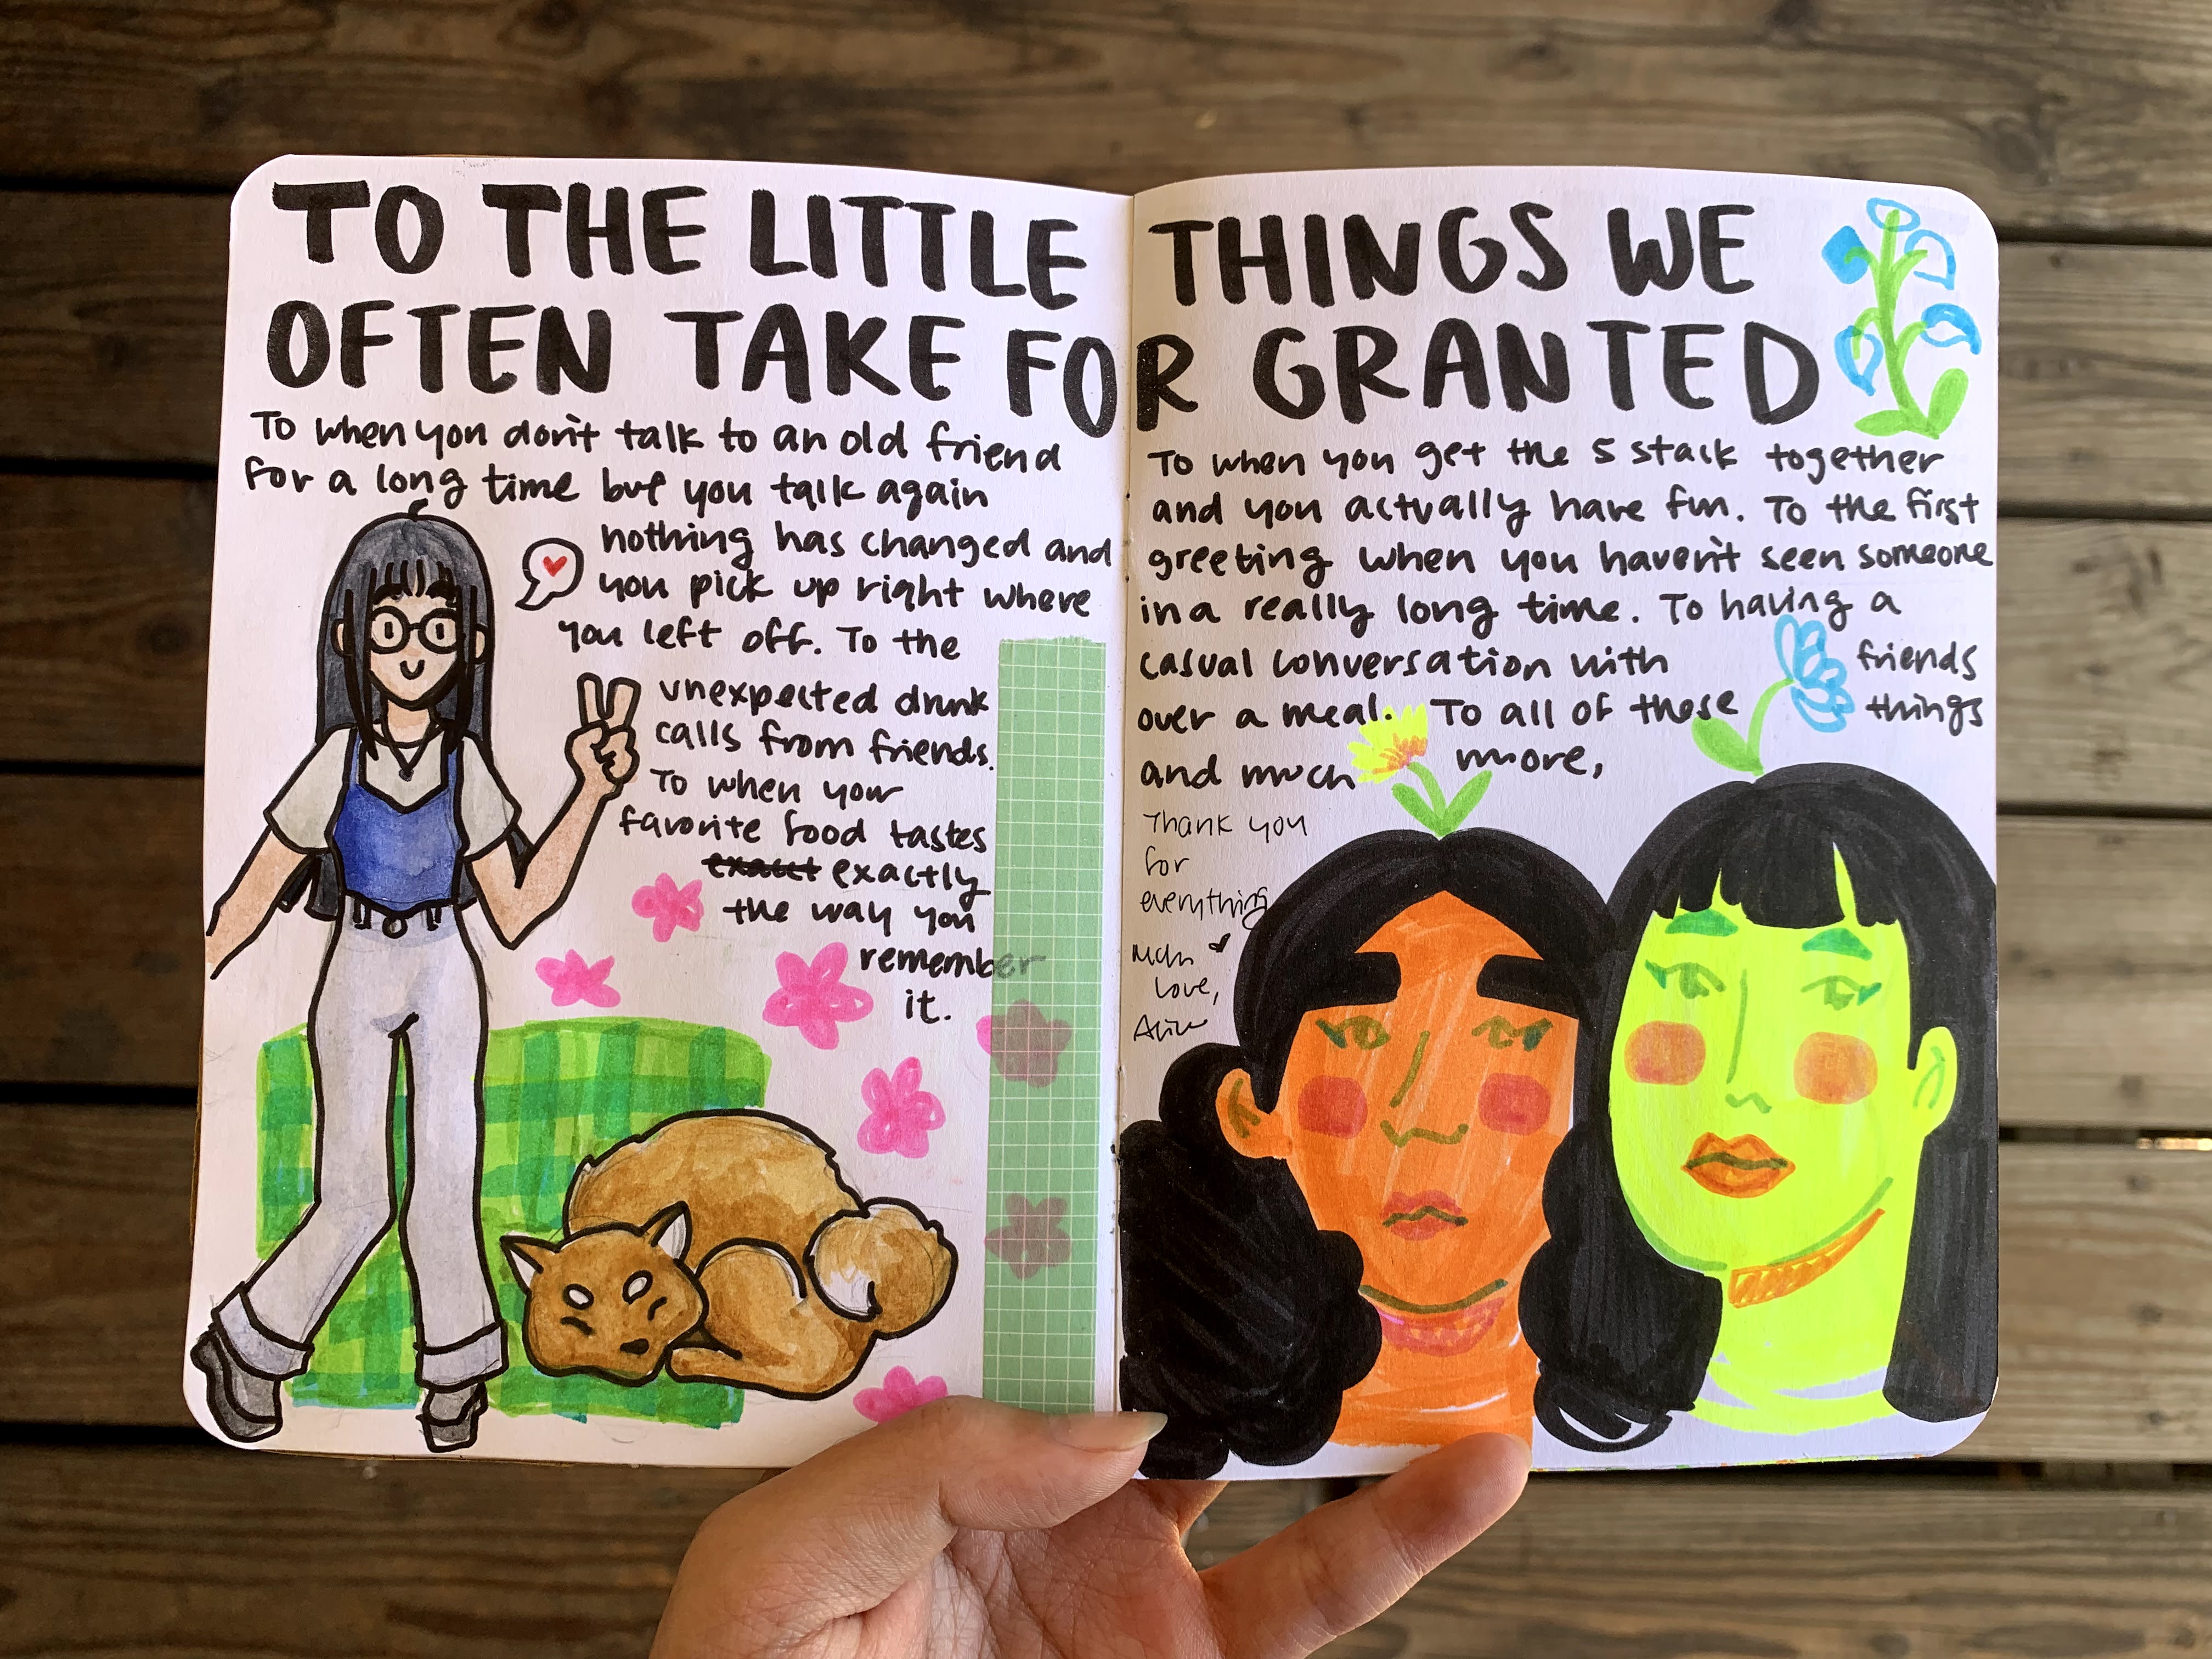 TO THE LITTLE THINGS WE
OFTEN TAKE FOR GRANTED
To when you don't talk to an old friend
for a long time but you talk again
nothing has changed and
you pick up right where
you left off. To the
unexpected drunk
calls from friends.
To when your
favorite food tastes
exactly
the way you
remember
it.
To when you get the 5 stack together
and you actually have fun. To the first
greeting when you haven't seen someone
in a really long time. To having a
casual conversation with friends
over a meal. To all of these things
and much more,
Thank you
for
everything
Much
love,